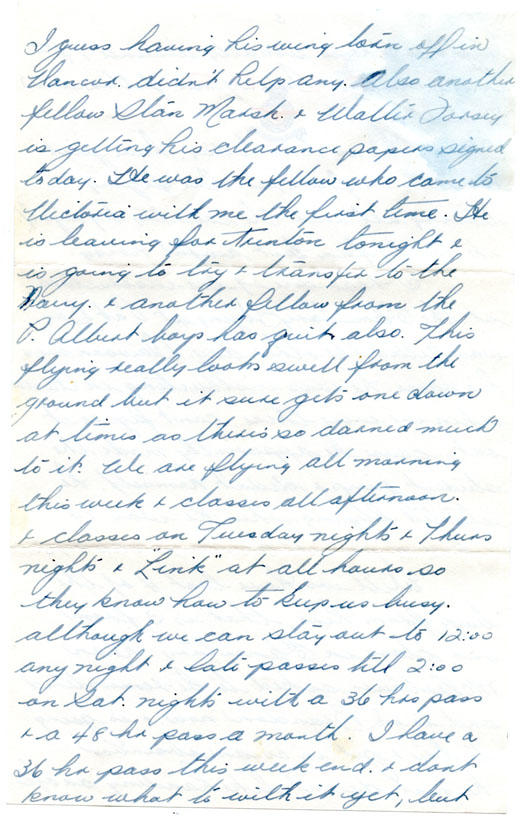 I guess having his wing torn off in
Vancor. didn't help any. Also another
fellow Stan Marsh. & Wallie Dorsey
is getting his clearance papers signed
today. He was the fellow who came to
Victoria with me the first time. He
is leaving for Trenton tonight &
is going to try & transfer to the
Navy. & another fellow from the
P. Albert boys has quit also. This
flying really looks swell from the
ground but it sure gets one down
at times as theirs so darned much
to it. We are flying all morning
this week & classes all afternoon.
& classes on Tuesday nights & Thurs
nights & "Link" at all hours so
they know how to keep us busy.
although we can stay out to 12:00
any night & late passes till 2:00
on Sat. nights with a 36 hrs pass
& a 48 hr pass a month. I have a
36 hr pass this week end. & dont
know what to with it yet, but